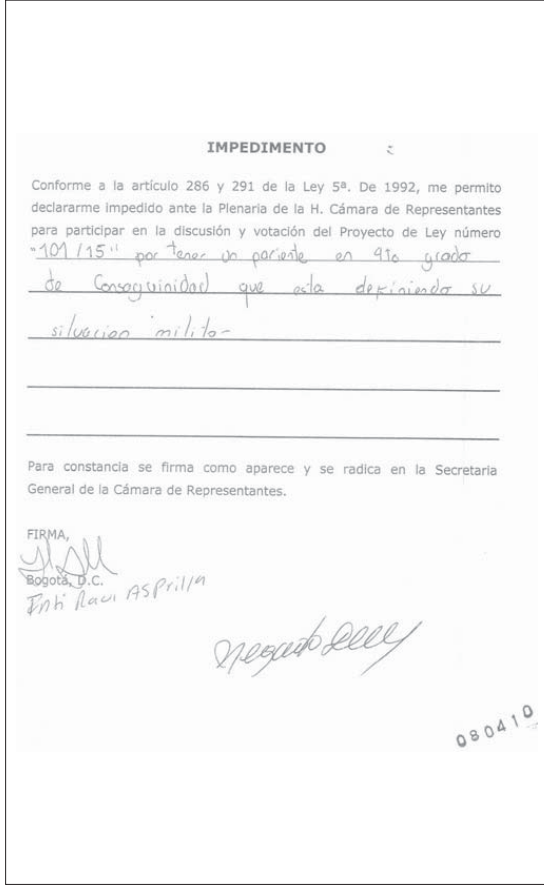 IMPEDIMENTO
Conforme a la artículo 286 y 291 de la Ley 5ª. De 1992, me permito
declararme impedido ante la Plenaria de la H. Cámara de Representantes
para participar en la discusión y votación del Proyecto de Ley número
"101/15" por tener un pariente en 4to grado
de Consaguinidad que esta definiendo su
situacion milita-
Para constancia se firma como aparece y se radica en la Secretaria
General de la Cámara de Representantes.
FIRMA,
Bogotá, D.C.
Inti Raul ASPrilla
080410